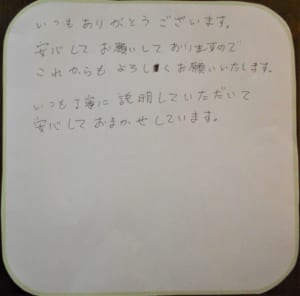 いつもありがとうございます。
安心してお願いしておりますので
これからもよろしくお願いいたします。
いつも丁寧に説明していただいて
安心しておまかせしています。